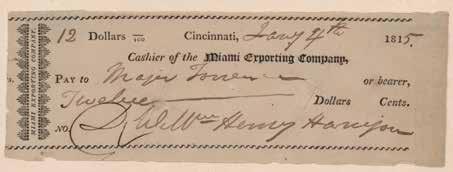 12 Dollars /100 Cincinnati, Jany 4th 1815.
Cashier of the Miami Exporting Company,
PAY to Major Torrence or bearer,
Twelve Dollars Cents.
NO. Wm Henry Harrison
MIAMI EXPORTING COMPANY.